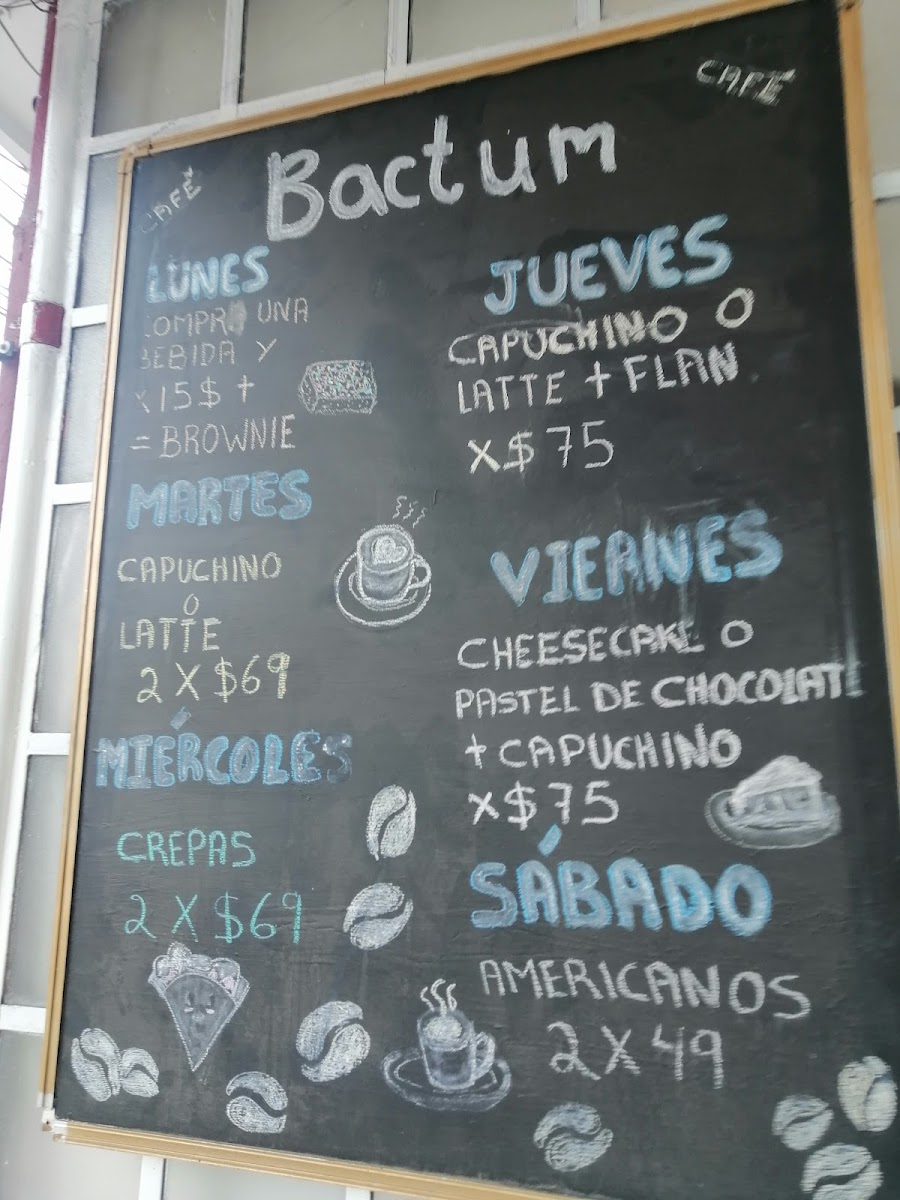 CAFÉ
CAFÉ
Bactum
LUNES
COMPRA UNA
BEBIDA Y
X15$ +
= BROWNIE
MARTES
CAPUCHINO
O
LATTE
2 X $69
MIÉRCOLES
CREPAS
2 X $69
JUEVES
CAPUCHINO O
LATTE + FLAN
X $75
VIERNES
CHEESECAKE O
PASTEL DE CHOCOLATE
+ CAPUCHINO
X $75
SÁBADO
AMERICANOS
2 X 49